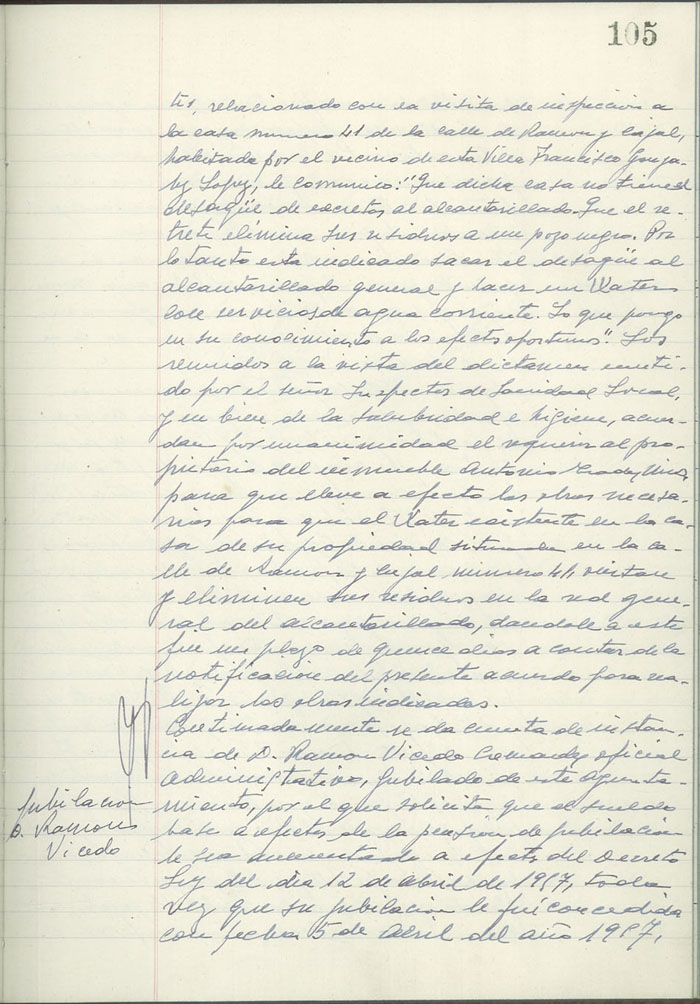 105
tes, relacionado con la visita de inspeccion a
la casa numero 41 de la calle de Ramon y Cajal,
habitada por el vecino de esta Villa Francisco Gonza-
lez Lopez, le comunico: "Que dicha casa no tiene el
desagüe de escretos al alcantarillado. Que el re-
trete elimina sus residuos a un pozo negro. Por
lo tanto esta indicado sacar el desagüe al
alcantarillado general y hacer un Water
con servicios de agua corriente. Lo que pongo
en su conocimiento a los efectos oportunos". Los
reunidos a la vista del dictamen emiti-
do por el señor Inspector de Sanidad Local,
y en bien de la salubridad e higiene, acuer-
dan por unanimidad el requerir al pro-
pietario del inmueble Antonio
para que lleve a efecto las obras necesa-
rias para que el Water existente en la ca-
sa de su propiedad situada en la ca-
lle de Ramon y Cajal numero 41, viertan
y eliminen sus residuos en la red gene-
ral del alcantarillado, dandole a este
fin un plazo de quince dias a contar de la
notificacion del presente acuerdo para rea-
lizar las obras indicadas.
Continuadamente se da cuenta de instan-
cia de D. Ramon Vicedo Cremades oficial
Administrativo, Jubilado de este Ayunta-
miento, por el que solicita que el sueldo
base a efectos de la pension de jubilacion
le sea aumentado a efectos del Decreto
Ley del dia 12 de abril de 1957, toda
vez que su jubilacion le fué concedida
con fecha 5 de Abril del año 1957,
Jubilacion
D. Ramon
Vicedo